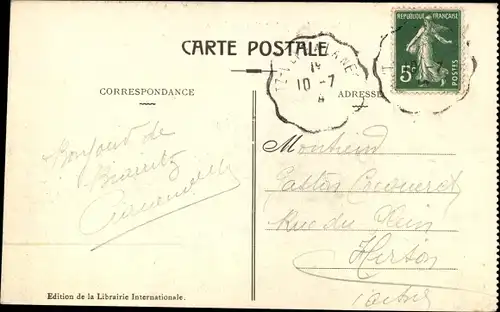 CARTE POSTALE
REPUBLIQUE FRANÇAISE
5c
POSTES
10 -7
CORRESPONDANCE
ADRESSE
Bonjour de
Biarritz
Monsieur
Gaston
Rue du
Hirson
Aisne
Edition de la Librairie Internationale.